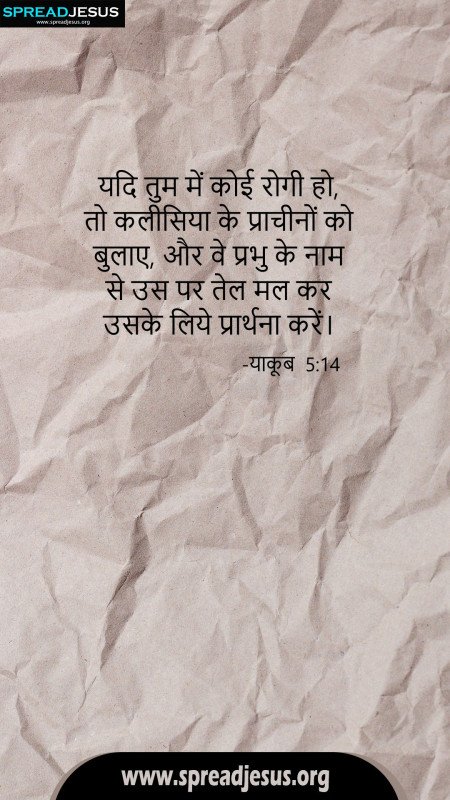 SPREADJESUS
www.spreadjesus.org
यदि तुम में कोई रोगी हो,
तो कलीसिया के प्राचीनों को
बुलाए, और वे प्रभु के नाम
से उस पर तेल मल कर
उसके लिये प्रार्थना करें।
-याकूब 5:14
www.spreadjesus.org